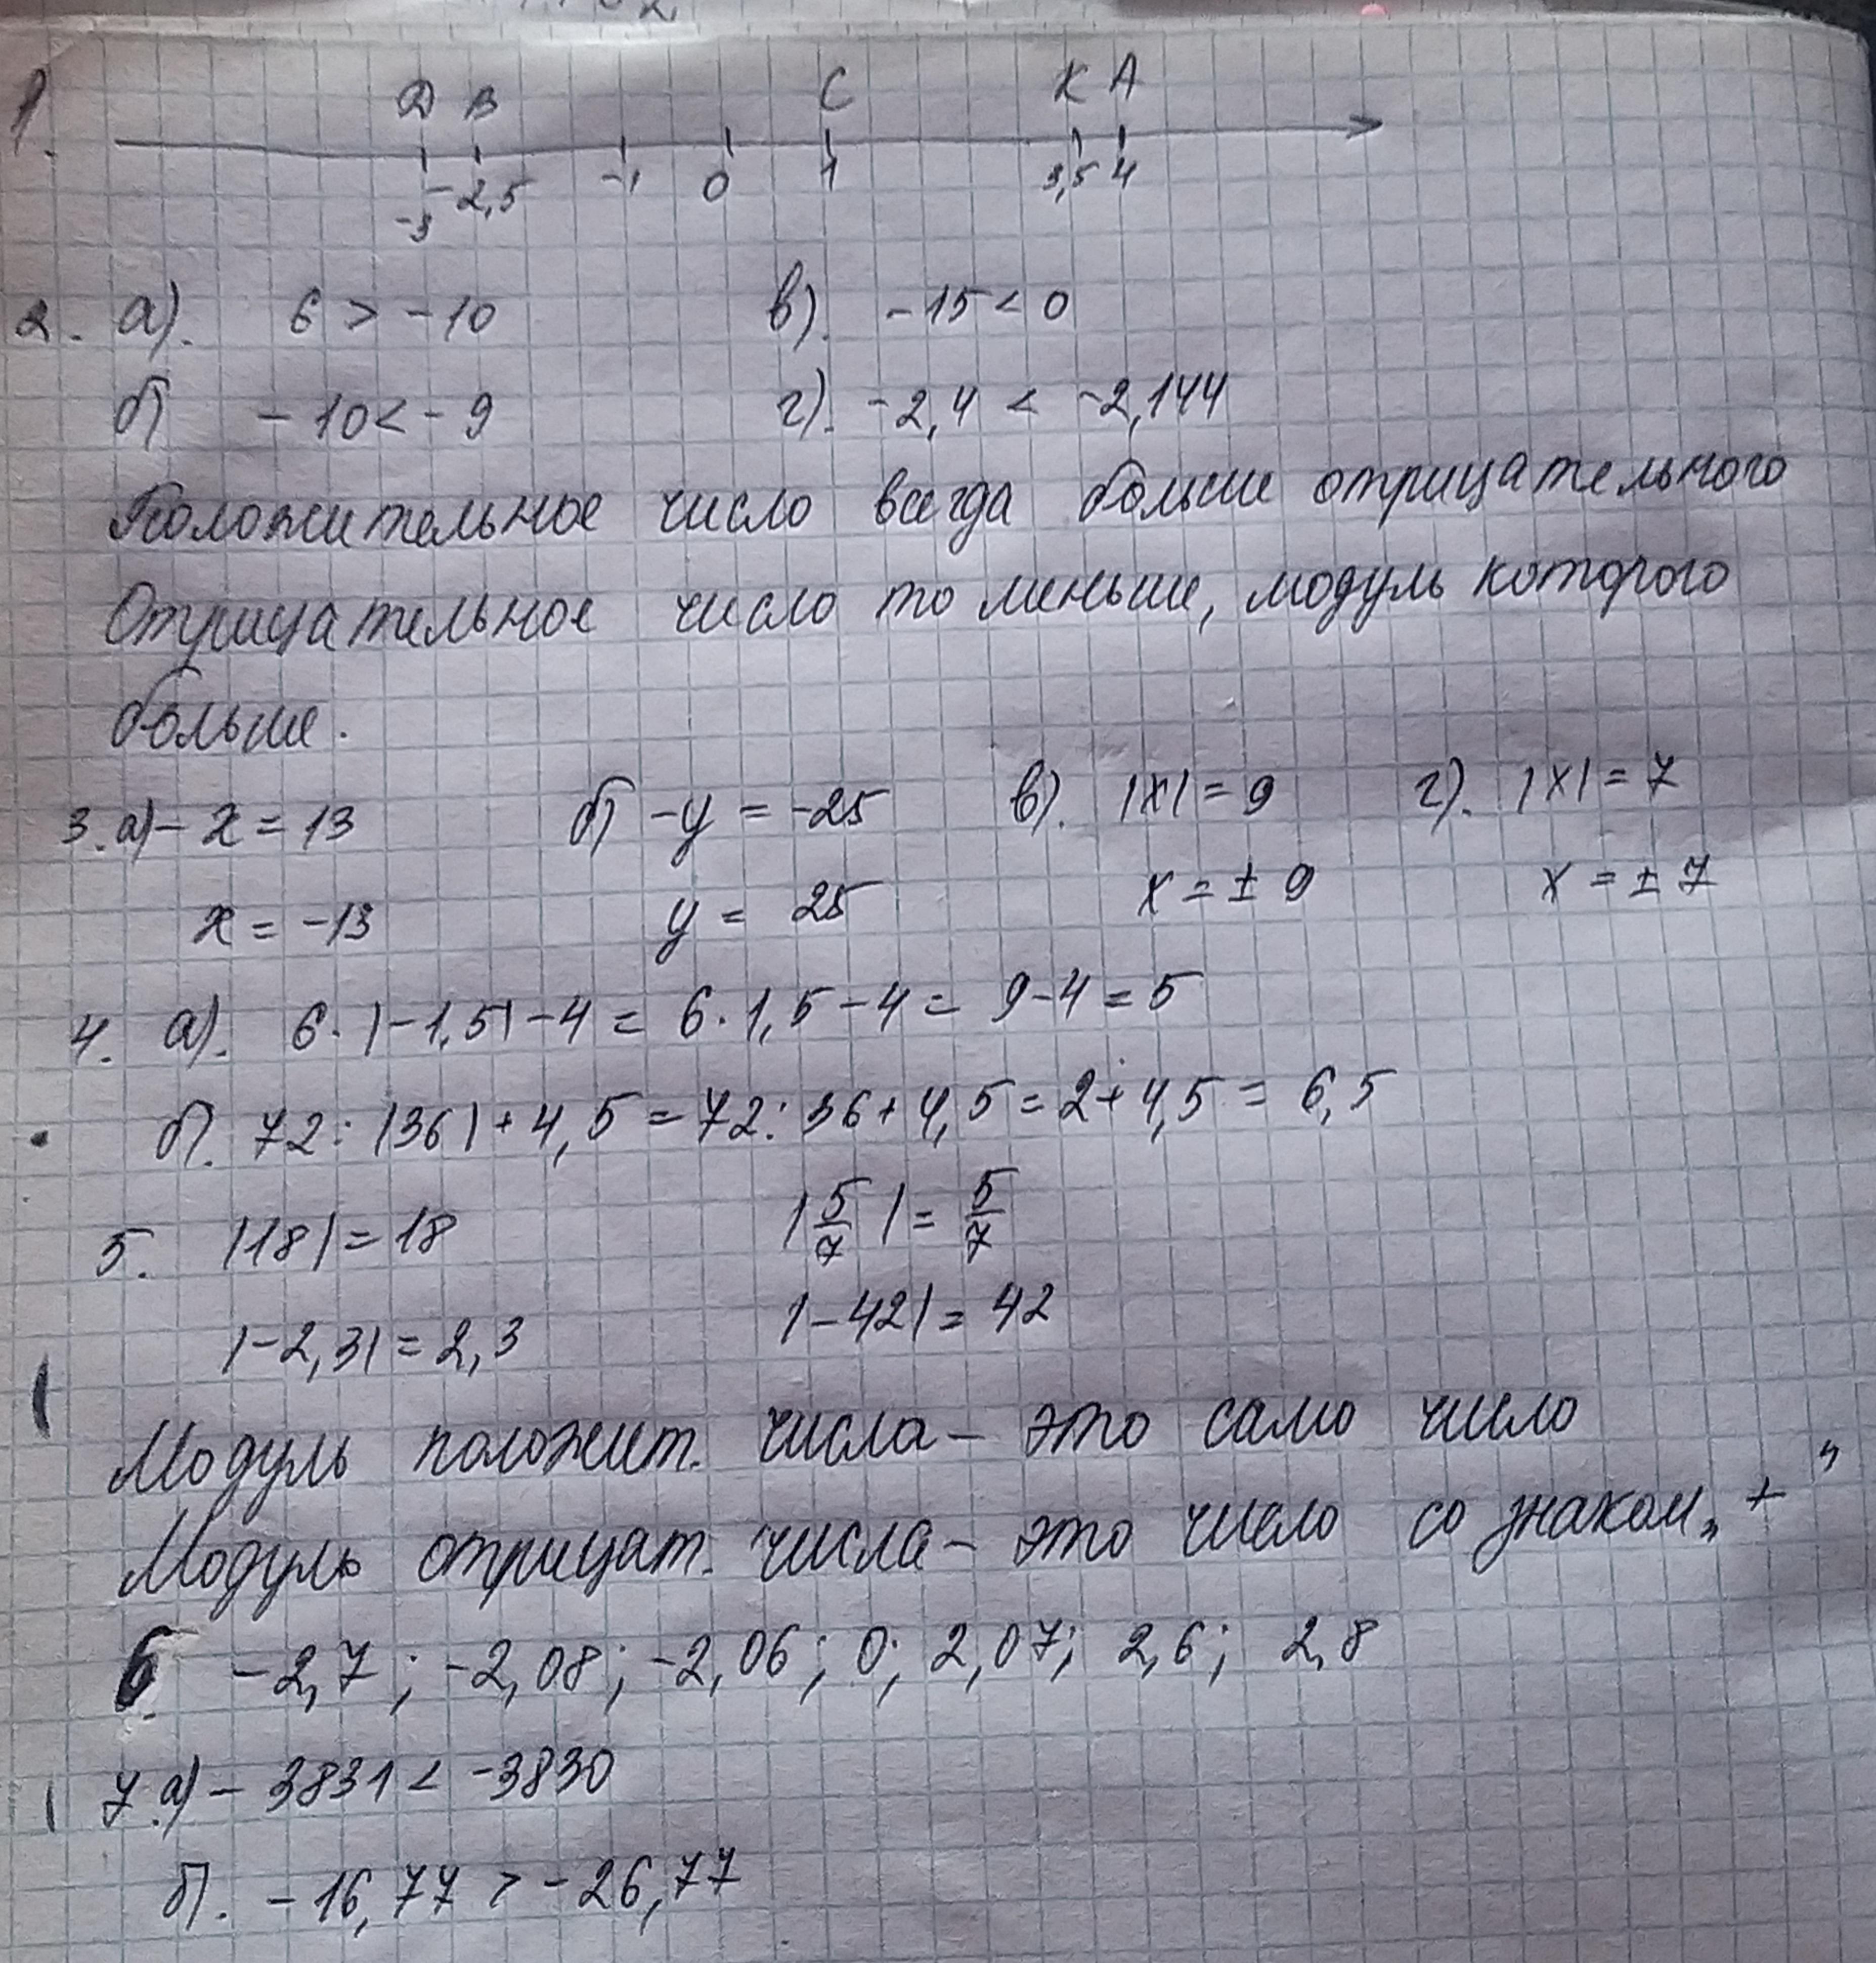 1.
D B C K A
-3 -2,5 -1 0 1 3,5 4
2. а). 6 > -10 в). -15 < 0
б) -10 < -9 г). -2,4 < -2,144
Положительное число всегда больше отрицательного
Отрицательное число то меньше, модуль которого
больше.
3. а) -x = 13 б) -y = -25 в). |x| = 9 г). |x| = 7
x = -13 y = 25 x = ± 9 x = ± 7
4. а). 6 · |-1,5| - 4 = 6 · 1,5 - 4 = 9 - 4 = 5
б). 72 : |36| + 4,5 = 72 : 36 + 4,5 = 2 + 4,5 = 6,5
5. |18| = 18 |5/7| = 5/7
|-2,3| = 2,3 |-42| = 42
Модуль положит. числа - это само число
Модуль отрицат. числа - это число со знаком „+"
6. -2,7; -2,08; -2,06; 0; 2,07; 2,6; 2,8
7. а) -3831 < -3830
б). -16,77 > -26,77